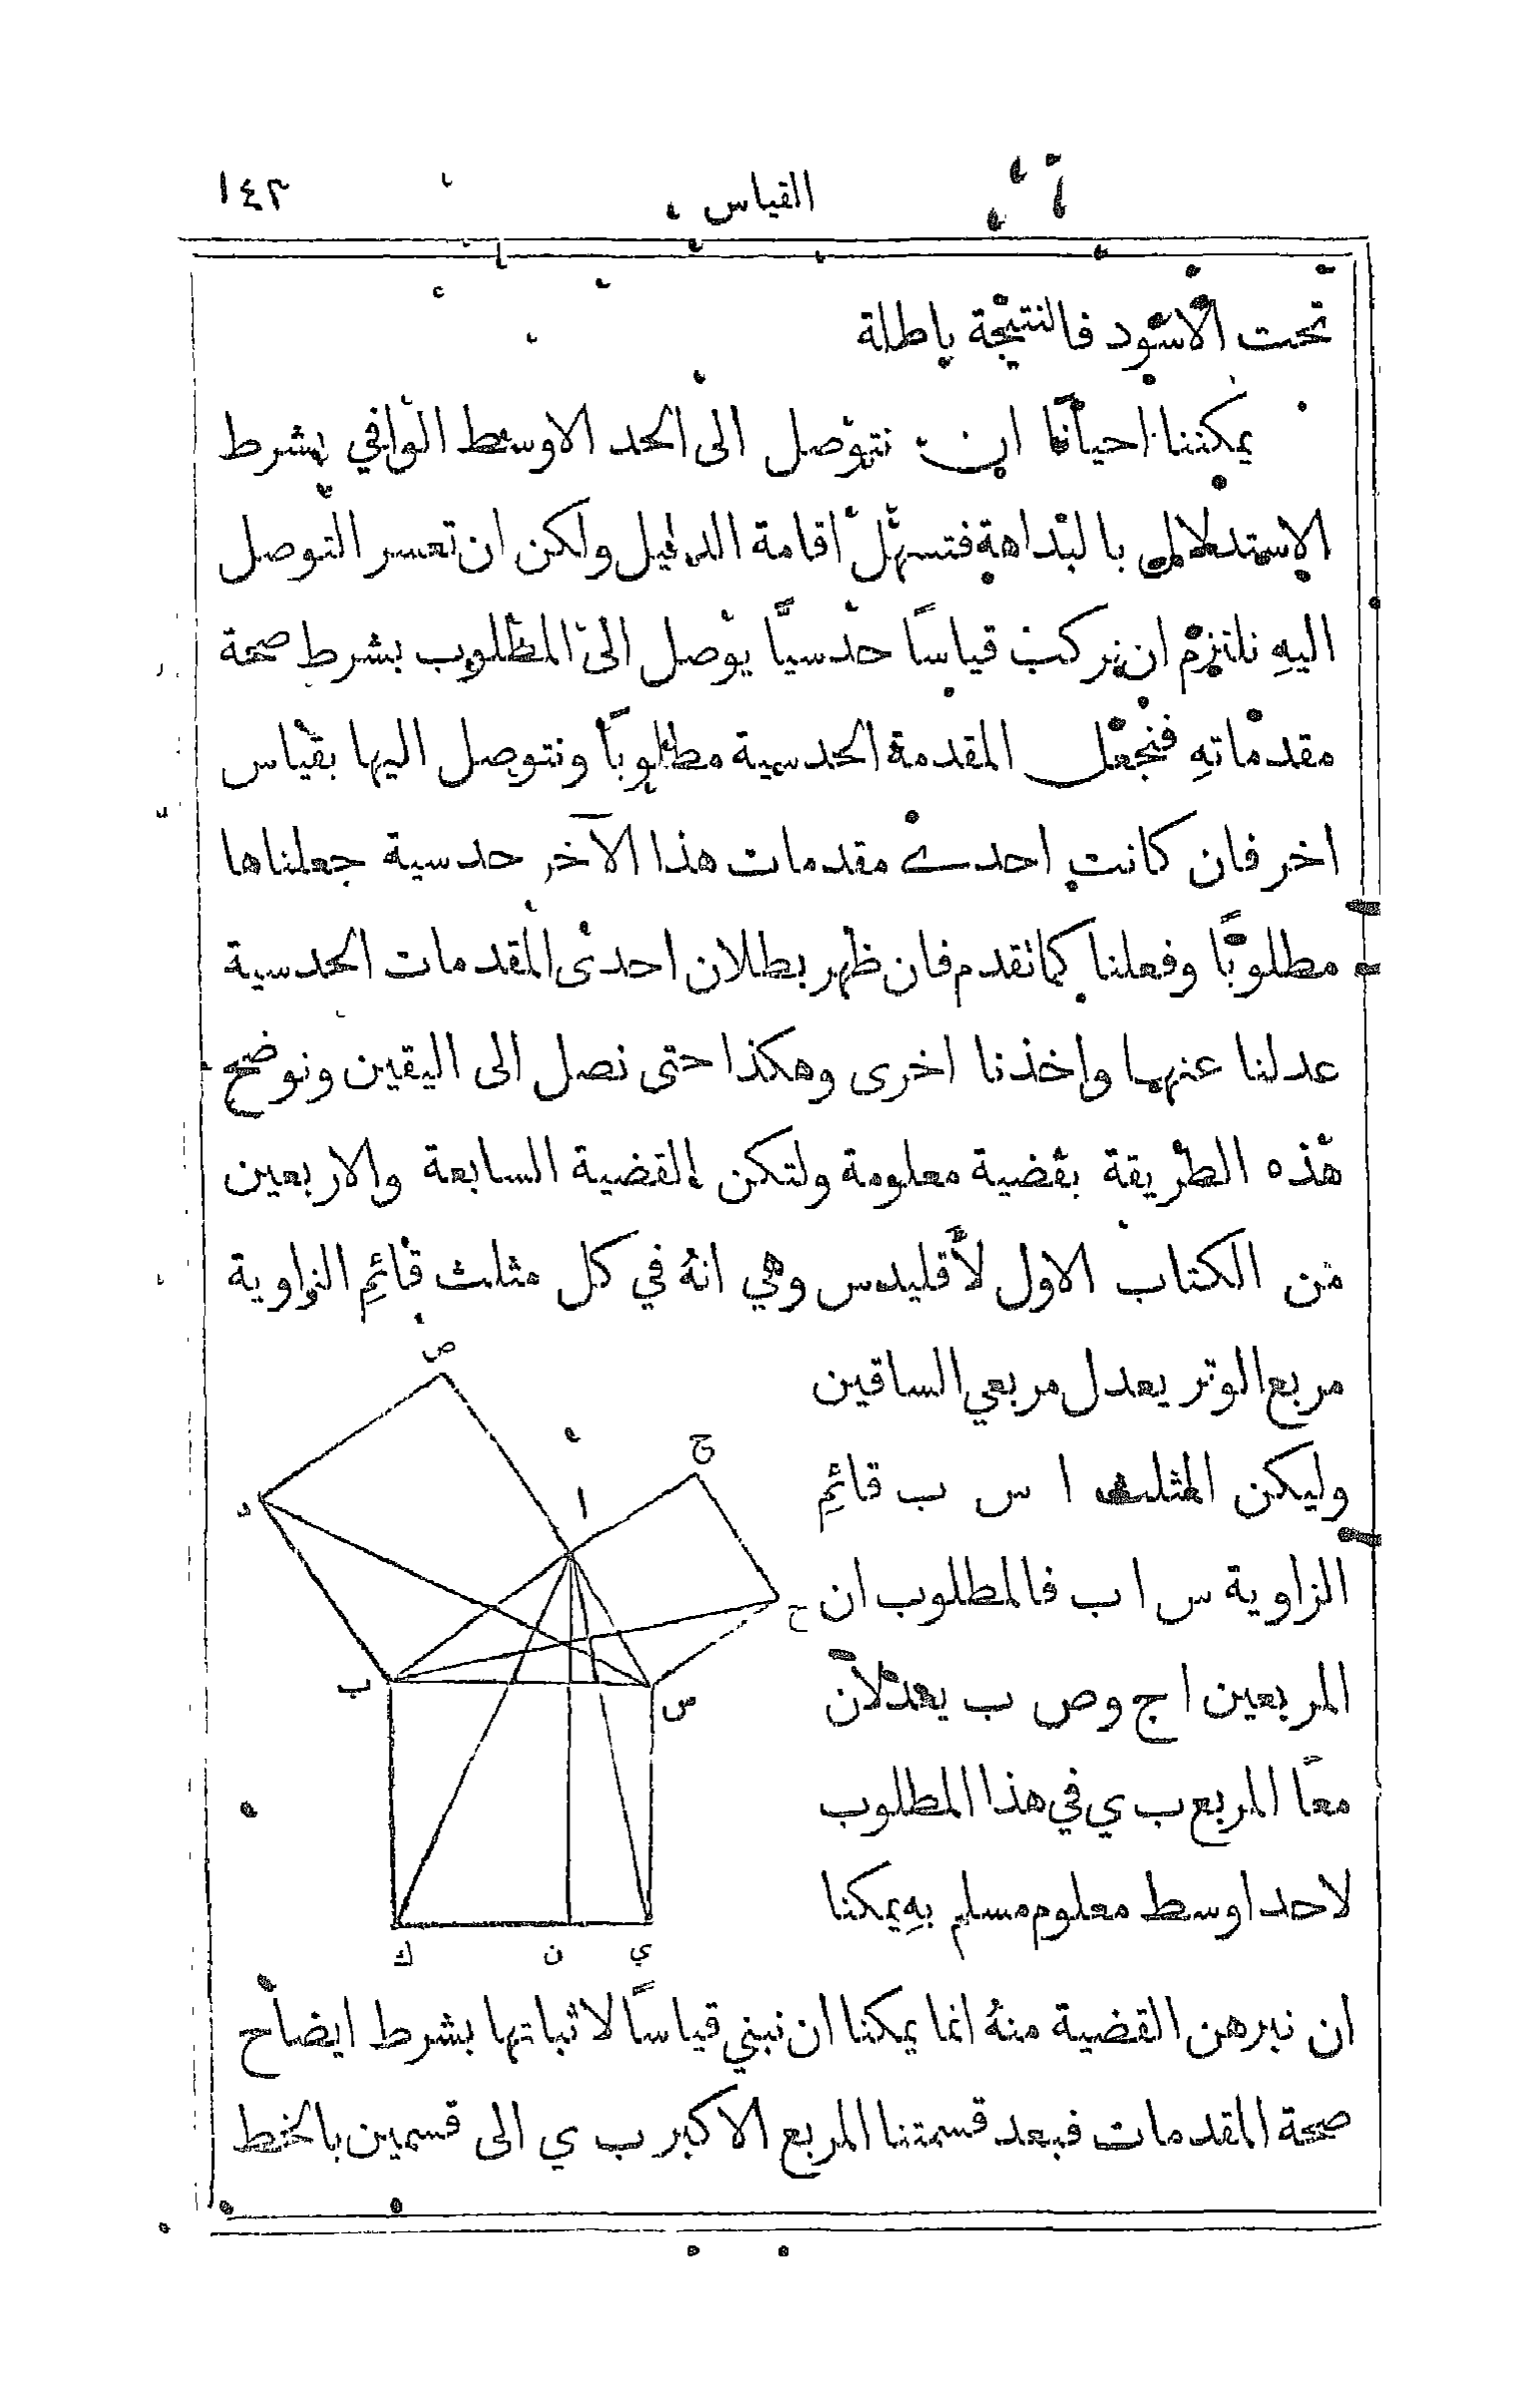 القياس ١٤٣
تحت الاسود فالنتيجة باطلة
يمكننا احيانًا ان نتوصل الى الحد الاوسط الوافي بشرط
الاستدلال بالبداهة فتسهل اقامة الدليل ولكن ان تعسر التوصل
اليهِ نلتزم ان نركب قياسًا حدسيًّا يوصل الى المطلوب بشرط صحة
مقدماتهِ فنجعل المقدمة الحدسية مطلوبًا ونتوصل اليها بقياس
اخر فان كانت احدى مقدمات هذا الآخر حدسية جعلناها
مطلوبًا وفعلنا كما تقدم فان ظهر بطلان احدى المقدمات الحدسية
عدلنا عنها واخذنا اخرى وهكذا حتى نصل الى اليقين ونوضح
هذه الطريقة بقضية معلومة ولتكن القضية السابعة والاربعين
من الكتاب الاول لأقليدس وهي انهُ في كل مثلث قائمِ الزاوية
مربع الوتر يعدل مربعي الساقين
وليكن المثلث ا س ب قائمِ
الزاوية س ا ب فالمطلوب ان
المربعين ا ج وص ب يعدلان
معًا المربع ب ي في هذا المطلوب
لا حد اوسط معلوم مسلم بهِ يمكنا
ص
ج
ا
د
ح
ب
س
ك ن ي
ان نبرهن القضية منهُ انما يمكنا ان نبني قياسًا لاثباتها بشرط ايضاح
صحة المقدمات فبعد قسمتنا المربع الاكبر ب ي الى قسمين بالخط